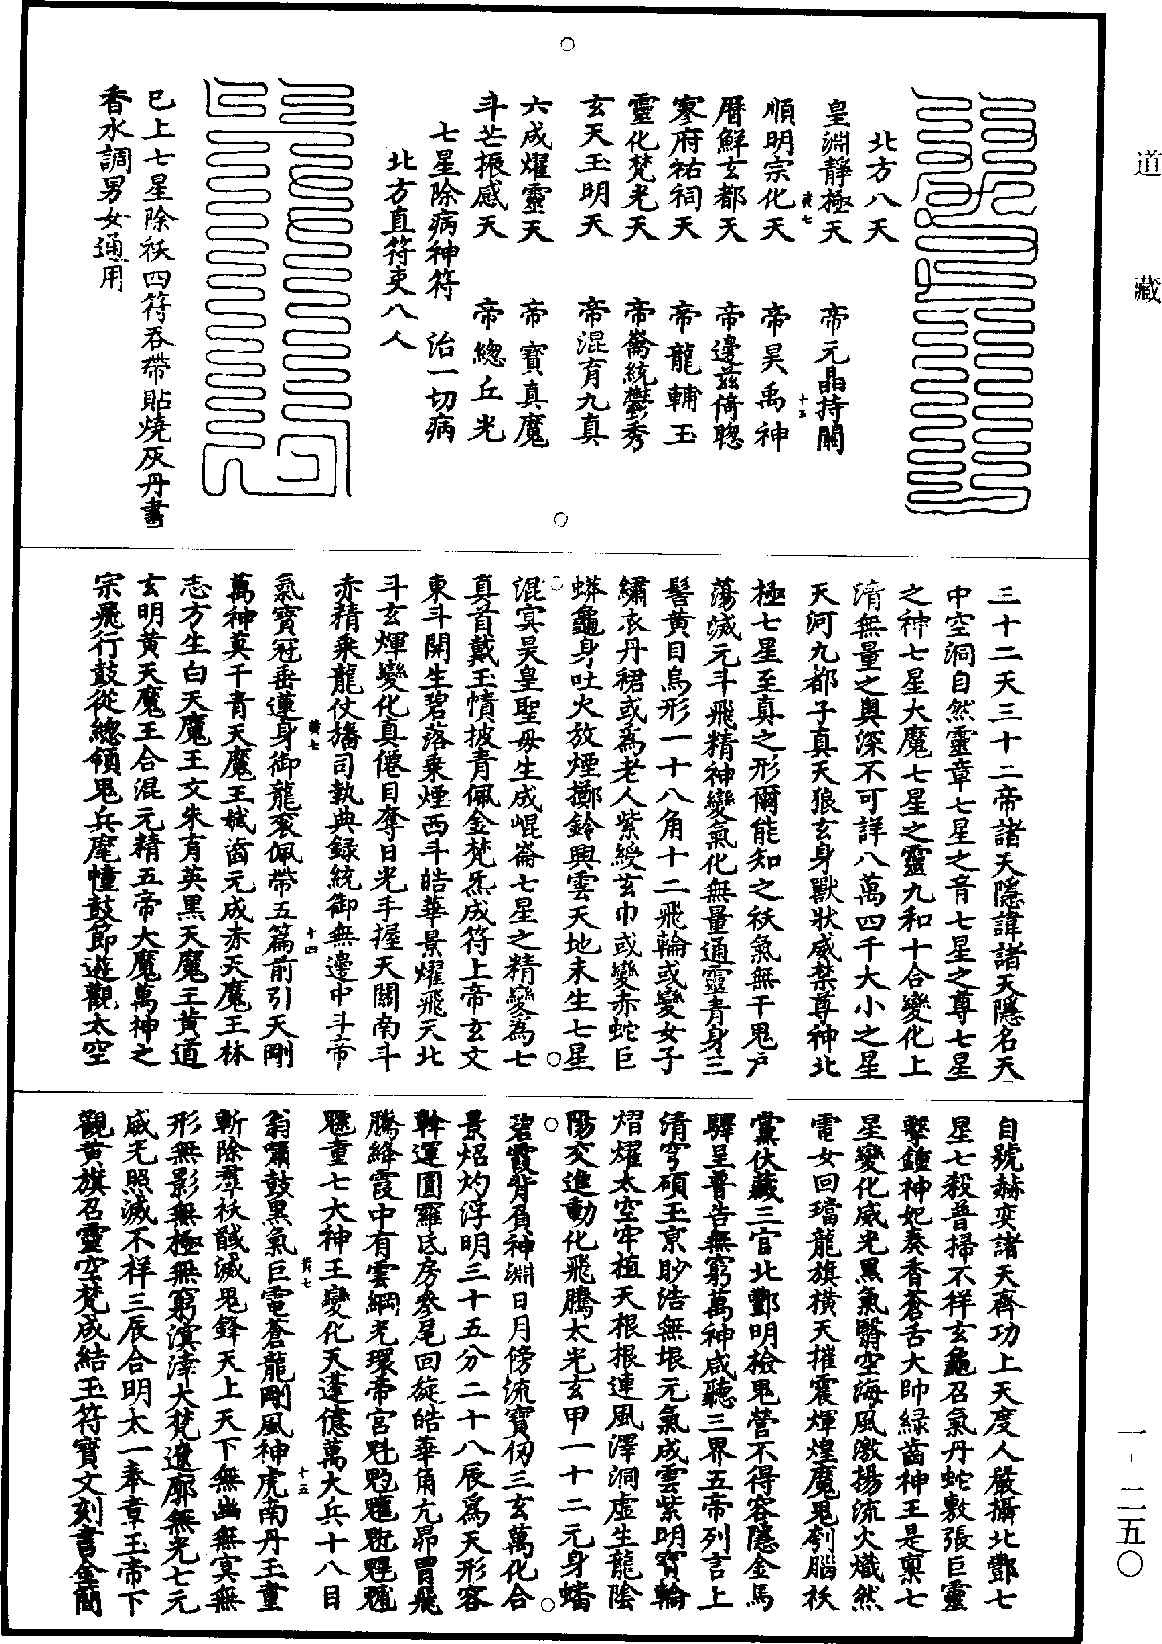 道藏
北方八天
皇淵靜極天　帝元晶持關
順明宗化天　帝昊禹神
曆鮮玄都天　帝邊茲倚聰
寥府祐祠天　帝龍輔玉
靈化梵光天　帝騫統鬱秀
玄天玉明天　帝混育九真
六成燿靈天　帝寶真魔
斗芒振感天　帝總丘光
七星除病神符　治一切病
北方直符吏八人
已上七星除祅四符吞帶貼燒灰丹書
香水調男女通用
三十二天三十二帝諸天隱諱諸天隱名天
中空洞自然靈章七星之音七星之尊七星
之神七星大魔七星之靈九和十合變化上
清無量之奧深不可詳八萬四千大小之星
天河九都子真天狼玄身獸狀威禁尊神北
極七星至真之形爾能知之祅氣無干鬼戶
蕩滅元斗飛精神變氣化無量通靈青身三
髻黃目鳥形一十八角十二飛輪或變女子
繡衣丹裙或為老人紫綬玄巾或變赤蛇巨
蟒龜身吐火放煙擲鈴興雲天地未生七星
混冥昊皇聖母生成崐崙七星之精變為七
真首戴玉幘披青佩金梵炁成符上帝玄文
東斗開生碧落乘煙西斗皓華景燿飛天北
斗玄輝變化真僊目奪日光手握天關南斗
赤精乘龍仗旛司執典錄統御無邊中斗帝
氣寶冠垂蓮身御龍衮佩帶五篇前引天剛
萬神莫千青天魔王䘲齒元成赤天魔王林
志方生白天魔王文朱有英黑天魔王黃道
玄明黃天魔王合混元精五帝大魔萬神之
宗飛行鼓從總領鬼兵麾幢鼓節遊觀太空
自號赫奕諸天齊功上天度人嚴攝北酆七
星七殺普掃不祥玄龜召氣丹蛇敷張巨靈
擊鍾神妃奏香蒼舌大帥緑齒神王是稟七
星變化威光黑氣翳空海風激揚流火熾然
電女回璫龍旗橫天摧震輝煌魔鬼刳腦祅
黨伏藏三官北酆明檢鬼營不得容隱金馬
驛呈普告無窮萬神咸聽三界五帝列言上
清穹碩玉京眇浩無垠元氣成雲紫明寶輪
熠燿太空牢植天根根連風澤洞虛生龍陰
陽交進動化飛騰太光玄甲一十二元身蟠
碧霞背負神淵日月傍流寶仞三玄萬化合
景炤灼浮明三十五分二十八辰為天形容
斡運圓羅氐房參尾回旋皓華角亢昴胃飛
騰絳霞中有雲綱光環帝宮魁𩲃䰢魓䰣魒
魋重七大神王變化天蓬億萬大兵十八目
翁霤鼓黑氣巨電蒼龍剛風神虎南丹玉童
斬除羣祅馘滅鬼鋒天上天下無幽無冥無
形無影無極無窮溟涬大梵遼廓無光七元
威光照滅不祥三辰合明太一奉章玉帝下
觀黃旗召靈空梵成結玉符寶文刻書金簡
一-二五〇